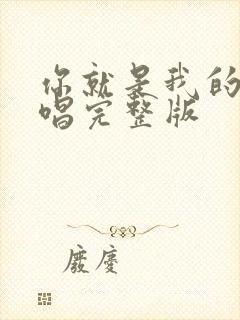 你就是我的
唱完整版
廢慶